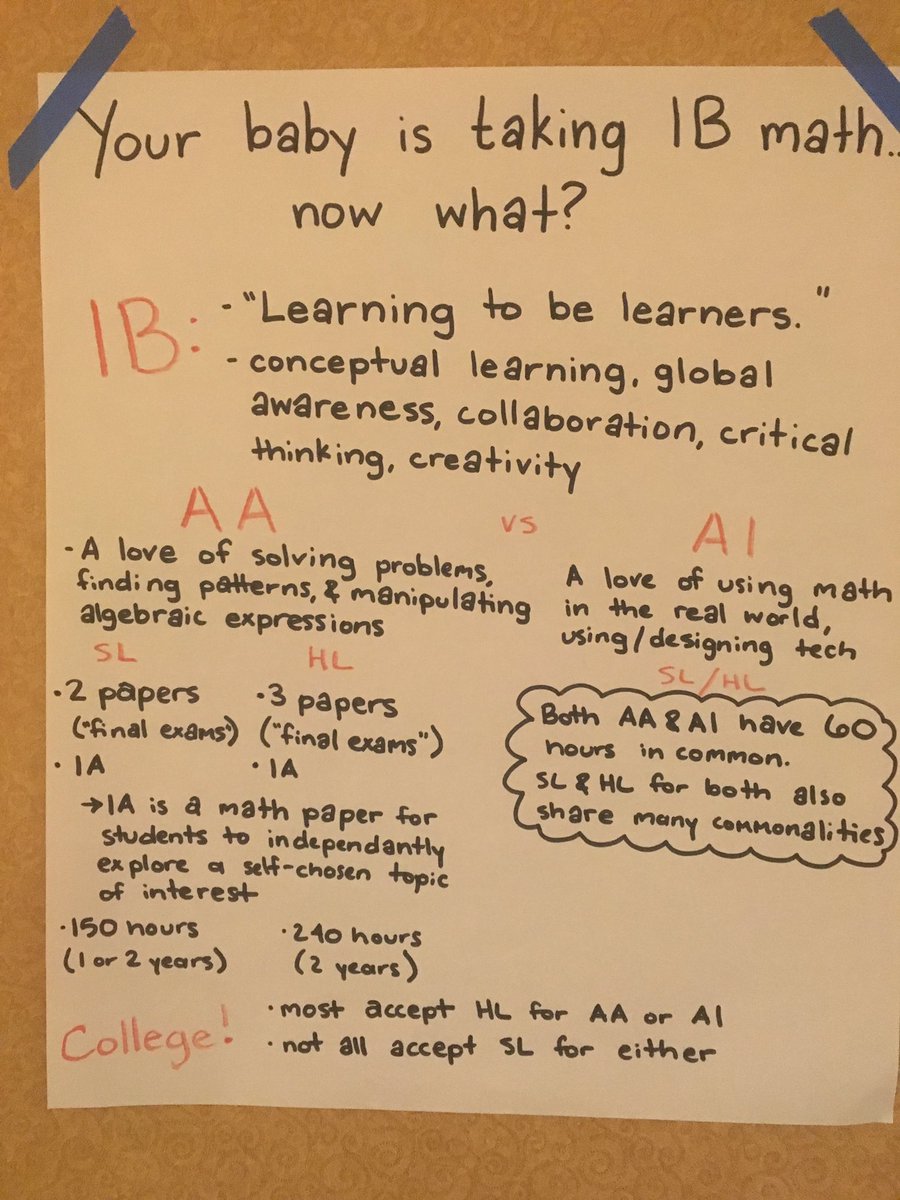 Your baby is taking IB math..
now what?
IB:
- "Learning to be learners."
- conceptual learning, global
awareness, collaboration, critical
thinking, creativity
AA vs AI
- A love of solving problems,
finding patterns, & manipulating
algebraic expressions
A love of using math
in the real world,
using/designing tech
SL HL
• 2 papers
("final exams")
• IA
• 3 papers
("final exams")
• IA
→ IA is a math paper for
students to independantly
explore a self-chosen topic
of interest
• 150 hours
(1 or 2 years)
• 240 hours
(2 years)
SL/HL
Both AA & AI have 60
hours in common.
SL & HL for both also
share many commonalities
College!
• most accept HL for AA or AI
• not all accept SL for either